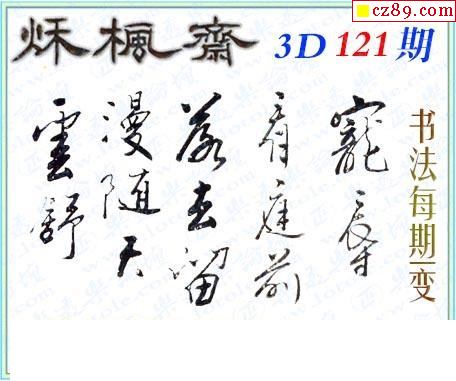 cz89.com
秌楓齋 3D 121 期
寵辱
看庭前
落去留
漫随天
雲舒
书法每期一变